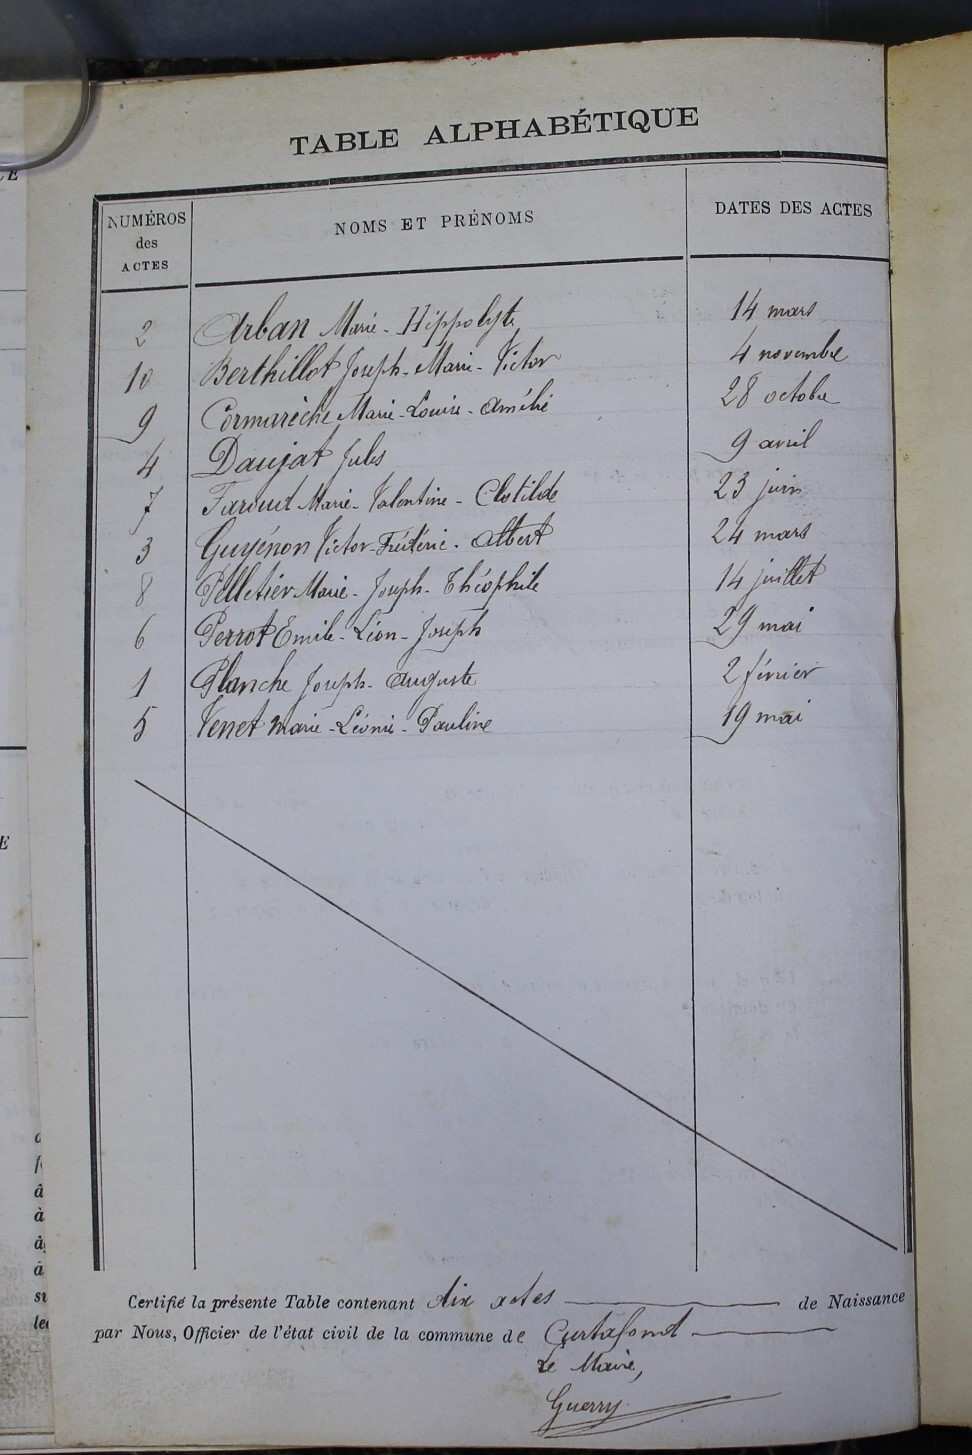 TABLE ALPHABÉTIQUE
NUMÉROS des ACTES NOMS ET PRÉNOMS DATES DES ACTES
2 Arban Marie - Hippolyte 14 mars
10 Berthillot Joseph - Marie - Victor 4 novembre
9 Cormarèche Marie - Louise - Amélie 28 octobre
4 Daujat Jules 9 avril
7 Faroud Marie - Valentine - Clotilde 23 juin
3 Guyénon Victor - Frédéric - Albert 24 mars
8 Pelletier Marie - Joseph - Théophile 14 juillet
6 Perrot Emile - Léon - Joseph 29 mai
1 Planche Joseph - Auguste 2 février
5 Venet Marie - Léonie - Pauline 19 mai
Certifié la présente Table contenant dix actes de Naissance
par Nous, Officier de l'état civil de la commune de Curtafond
Le Maire,
Guerry